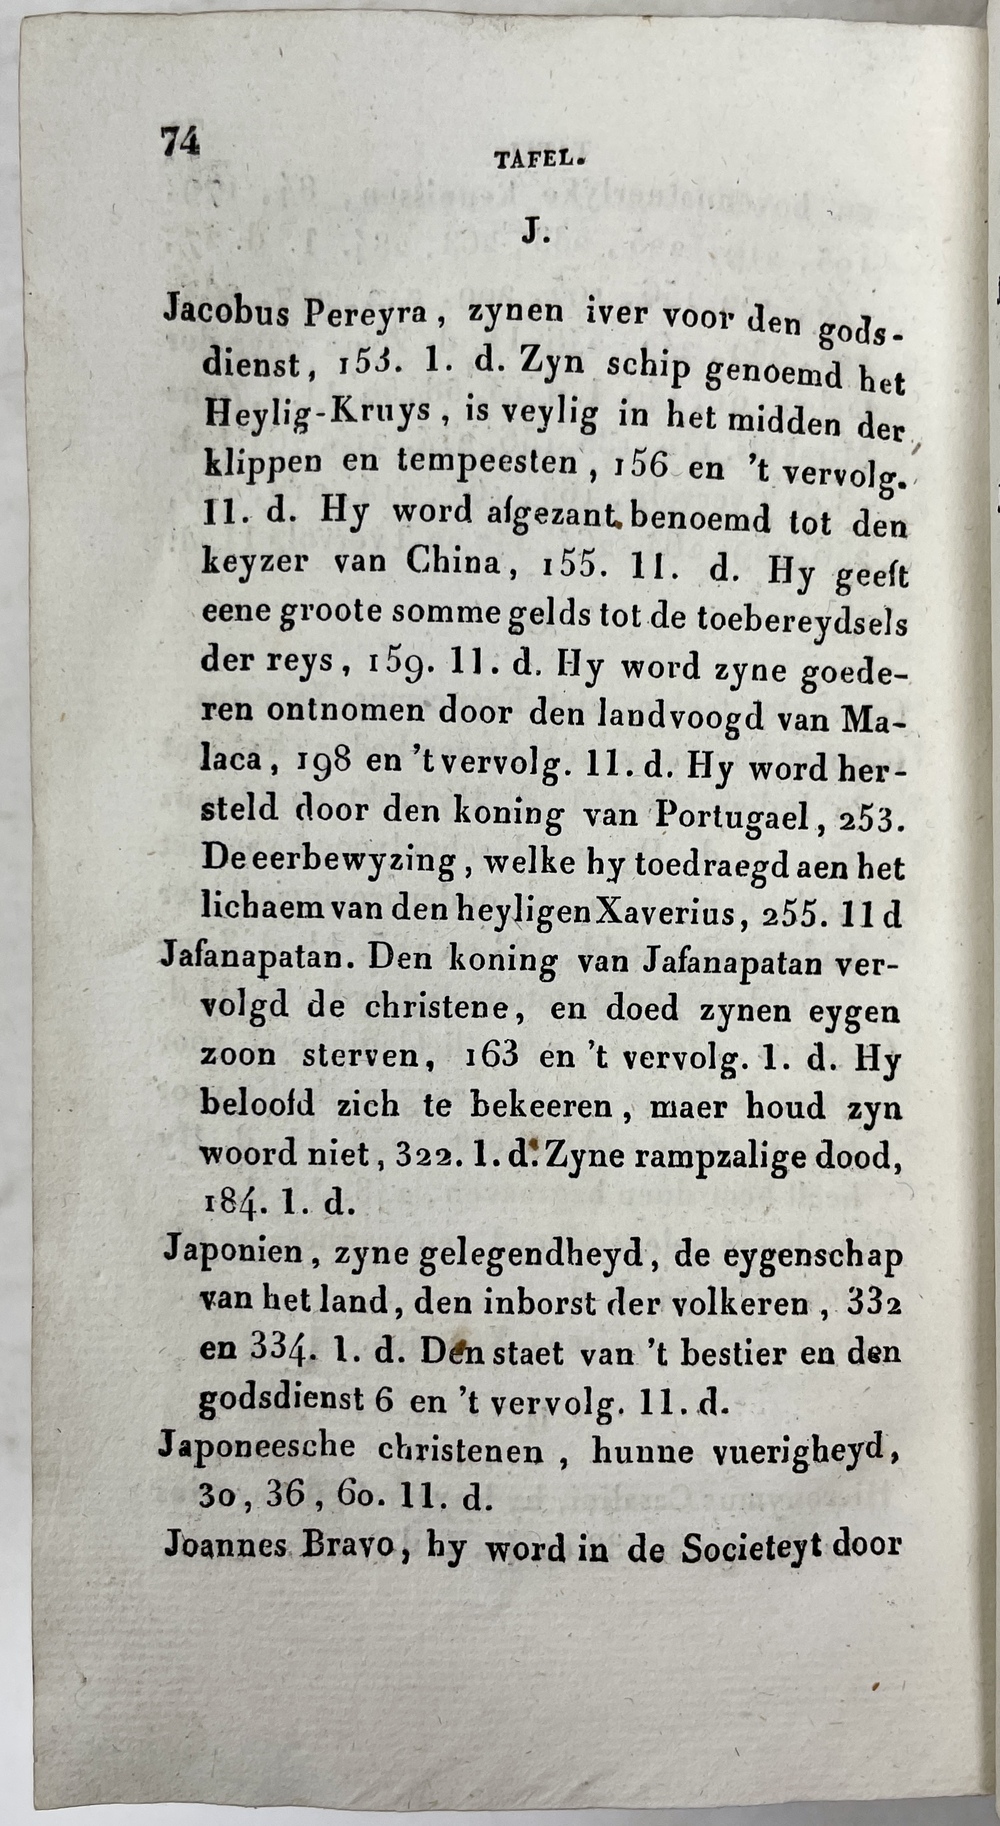 74
TAFEL.
J.
Jacobus Pereyra, zynen iver voor den gods-
dienst, 153. l. d. Zyn schip genoemd het
Heylig-Kruys, is veylig in het midden der
klippen en tempeesten, 156 en 't vervolg.
II. d. Hy word afgezant benoemd tot den
keyzer van China, 155. II. d. Hy geeft
eene groote somme gelds tot de toebereydsels
der reys, 159. II. d. Hy word zyne goede-
ren ontnomen door den landvoogd van Ma-
laca, 198 en 't vervolg. II. d. Hy word her-
steld door den koning van Portugael, 253.
De eerbewyzing, welke hy toedraegd aen het
lichaem van den heyligen Xaverius, 255. II d
Jafanapatan. Den koning van Jafanapatan ver-
volgd de christene, en doed zynen eygen
zoon sterven, 163 en 't vervolg. l. d. Hy
beloofd zich te bekeeren, maer houd zyn
woord niet, 322. l. d. Zyne rampzalige dood,
184. l. d.
Japonien, zyne gelegendheyd, de eygenschap
van het land, den inborst der volkeren, 332
en 334. l. d. Den staet van 't bestier en den
godsdienst 6 en 't vervolg. II. d.
Japoneesche christenen, hunne vuerigheyd,
30, 36, 60. II. d.
Joannes Bravo, hy word in de Societeyt door